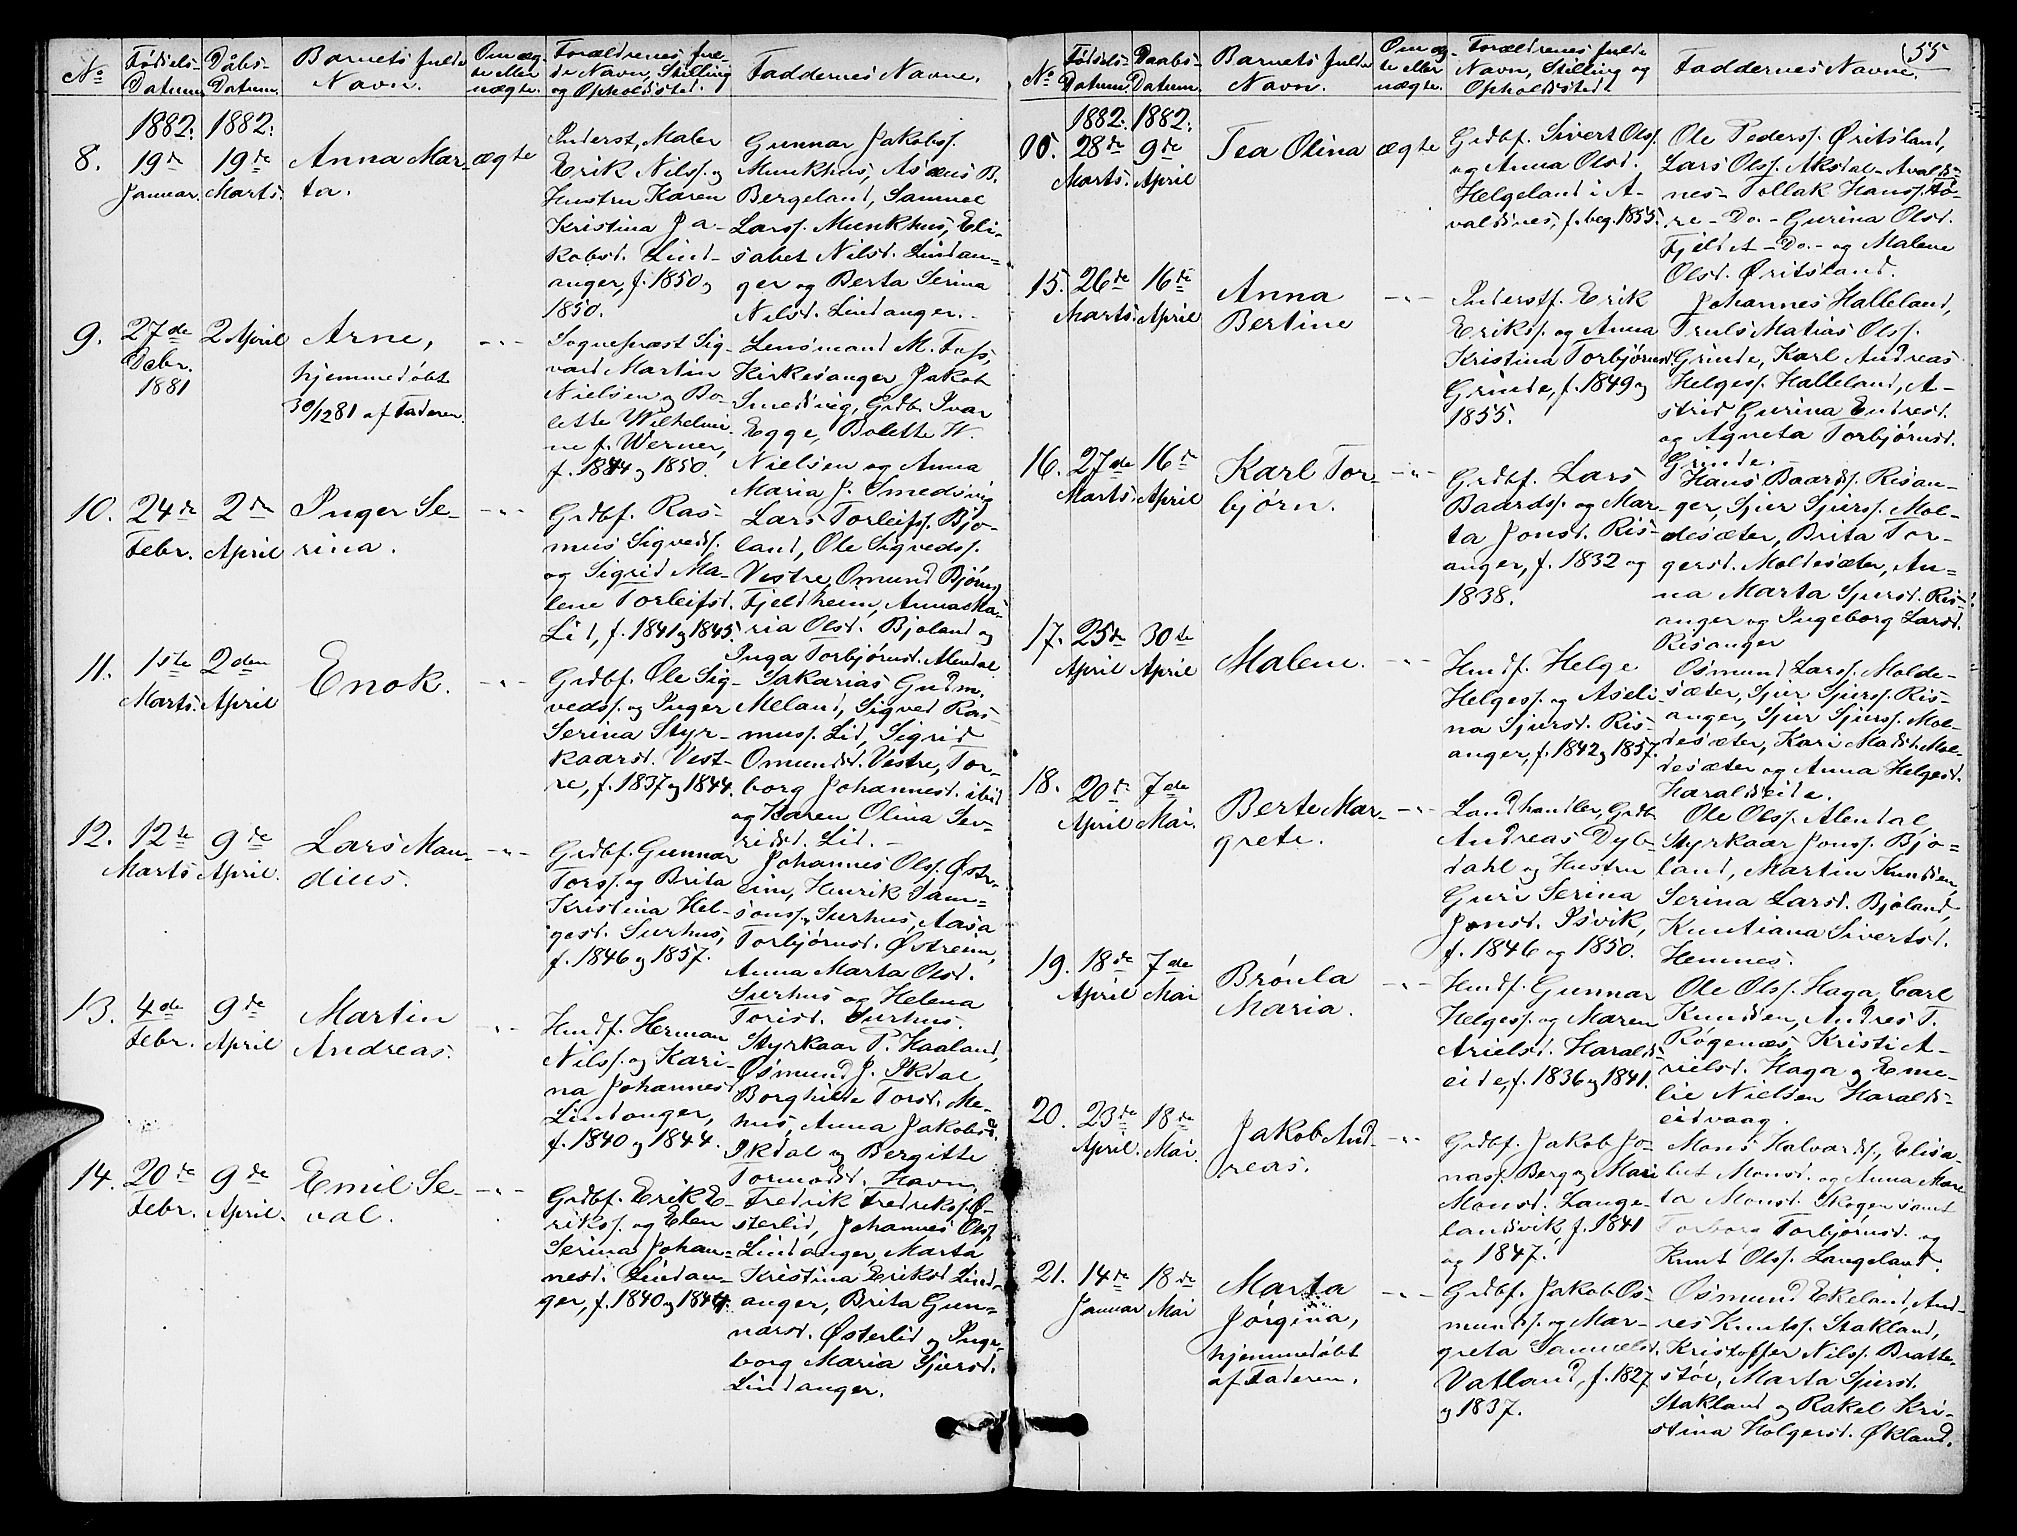 No
Fødsels-
Datum.
Dåbs-
Datum.
Barnets fulde
Navn.
Om æg-
te eller
uægte.
Forældrenes ful-
de Navn, Stilling
og Opholdssted.
Faddernes Navne.
1882: 1882:
8.
19de
Januar.
19de
Marts.
Anna Mar-
ta.
ægte
Inderst, Maler
Erik Nilss. og
Hustru Karen
Kristina Ja-
kobsd. Lind-
anger, f. 1850 og
1850.
Gunnar Jakobss.
Munkhus, Asæus B.
Bergeland, Samuel
Larss. Munkhus, Eli-
sabet Nilsd. Lindan-
ger og Berta Serina
Nilsd. Lindanger.
9.
27de
Debr.
1881
2 April
Arne,
hjemmedøbt
30/12 81 af Faderen.
- " -
Sogneprest Sig-
vard Martin
Nielsen og Bo-
lette Wilhelmi-
ne f. Werner,
f. 1844 og 1850.
Lensmand M. Foss,
Kirkesanger Jakob
Smedsvig, Grdb. Ivar
Egge, Bolette W.
Nielsen og Anna
Maria J. Smedsvig
10.
24de
Febr.
2den
April
Inger Se-
rina.
- " -
Grdbf. Ras-
mus Sigvedss.
og Sigrid Ma-
lene Torleifsd.
Lid, f. 1841 og 1845.
Lars Torleifss. Bjo-
land, Ole Sigvedss.
Vestre, Omund Bjørns.
Fjeldheim, Anna Ma-
ria Olsd. Bjoland og
Inga Torbjørnsd. Alendal
11.
1ste
Marts.
2den
April
Enok.
- " -
Grdbf. Ole Sig-
vedss. og Inger
Serina Styr-
kaarsd. Vest-
re, f. 1837 og 1844.
Sakarias Gudm.
Meland, Sigved Ras-
muss. Lid, Sigrid
Omundsd. Vestre, Tor-
borg Johannesd. ibid
og Karen Olina Sev-
ridsd. Lid. -
12.
12te
Marts
9de
April.
Lars Man-
dius.
- " -
Grdbf. Gunnar
Torss. og Brita
Kristina Hel-
gesd. Surhus,
f. 1846 og 1857.
Johannes Olss. Østr-
eim, Henrik Sam-
sonss. Surhus, Aasa
Torbjørnsd. Østreim,
Anna Marta Olsd.
Surhus og Helena
Torisd. Surhus.
13.
4de
Febr.
9de
April
Martin
Andreas.
- " -
Hmdf. Herman
Nilss. og Kari-
na Johannesd
Lindanger,
f. 1840 og 1844.
Styrkaar P. Haaland,
Osmund J. Ikdal
Borghilde Torsd. Me-
hus, Anna Jakobsd.
Ikdal og Bergitte
Tormodsd. Havn.
14.
20de
Febr.
9de
April.
Emil Se-
val.
- " -
Grdbf. Erik E-
rikss. og Elen
Serina Johan-
nesd. Lindan-
ger, f. 1840 og 1844.
Fredrik Fredrikss. Ø-
sterlid, Johannes Olss.
Lindanger, Marta
Kristina Eriksd. Lind-
anger, Brita Gun-
narsd. Østerlid og Inge-
borg Maria Sjursd.
Lindanger.
55
No
Fødsels-
Datum.
Daabs-
Datum.
Barnets fulde
Navn.
Om æg-
te eller
uægte.
Forældrenes fulde
Navn, Stilling og
Opholdssted.
Faddernes Navne.
1882: 1882:
28de
Marts.
9de
April
Tea Olina
ægte
Grdbf. Sivert Olss.
og Anna Olsd.
Helgeland i A-
valdsnes, f. beg. 1855.
Ole Pederss. Øritsland,
Lars Olss. Aksdal - Avalds-
nes - Tollak Hanss. Fø-
re - Do. - Gurina Olsd.
Fjeldet - Do. - og Malene
Olsd. Øritsland.
15.
26de
Marts.
16de
April
Anna
Bertine
- " -
Inderstf. Erik
Erikss. og Anna
Kristina Torbjørnsd
Grinde, f. 1849 og
1855.
Johannes Halleland,
Truls Matias Olss.
Grinde, Karl Andreas
Helgess. Halleland, A-
strid Gurina Endresd.
og Agneta Torbjørnsd.
Grinde. -
16.
27de
Marts.
16de
April
Karl Tor-
bjørn.
- " -
Grdbf. Lars
Baardss. og Mar-
ta Jonsd. Ris-
anger, f. 1832 og
1838.
Hans Baardss. Risan-
ger, Sjur Sjurss. Mol-
desæter, Brita Tor-
gersd. Moldesæter, An-
na Marta Sjursd. Ris-
anger og Ingeborg Larsd.
Risanger
17.
25de
April
30te
April
Malene.
- " -
Hmdf. Helge
Helgess. og Aseli-
na Sjursd. Ris-
anger, f. 1842 og 1857.
Osmund Larss. Molde-
sæter, Sjur Sjurss. Ris-
anger, Sjur Sjurss. Mol-
desæter, Kari Madsd. Mol-
desæter og Anna Helgesd.
Haraldseide.
18.
20de
April
7de
Mai.
Berte Mar-
grete.
- " -
Landhandler, Grdb.
Andreas Dyb-
dahl og Hustru
Guri Serina
Jonsd. Isvik,
f. 1846 og 1850.
Ole Olss. Alendal,
Styrkaar Jonss. Bjo-
land, Martin Knudsen,
Serina Larsd. Bjoland,
Knutiana Sivertsd.
Hemnes.
19.
18de
April
7de
Mai
Brønla
Maria.
- " -
Hmdf. Gunnar
Helgess. og Maren
Arielsd. Haralds-
eide, f. 1836 og 1841.
Ole Olss. Haga, Carl
Knudsen, Andres T.
Røgenæs, Kristi A-
rielsd. Haga og Eme-
lie Nielsen Haralds-
eidvaag.
20.
23de
April.
18de
Mai.
Jakob And-
reas.
- " -
Grdbf. Jakob Jo-
nass. Berg og Mari
Monsd. Lange-
landsvik, f. 1841
og 1847.
Mons Halvardss., Elisa-
bet Monsd. og Anna Mar-
ta Monsd. Skogen samt
Torborg Torbjørnsd. og
Knut Olss. Langeland.
21.
14de
Januar
18de
Mai
Marta
Jørgina,
hjemmedøbt
af Faderen.
- " -
Grdbf. Jakob Os-
mundss. og Mar-
greta Samuelsd.
Vatland, f. 1827
og 1837.
Osmund Ekeland, And-
res Knutss. Stakland,
Kristoffer Nilss. Bratte-
støe, Marta Sjursd.
Stakland og Rakel Kri-
stina Holgersd. Økland.